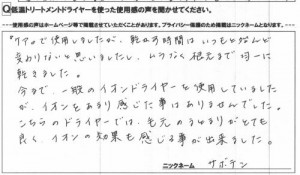 Q低温トリートメントドライヤーを使った使用感の声を聞かせてください。
使用感の声はホームページ等で掲載させていただくことがあります。プライバシー保護のため掲載はニックネームとなります。
で使用しましたが、乾かす時間はいつもとなんど
変わりないと思いましたし、いつなく根元まで均一に
乾きました。
今まで、一般のイオンドライヤーを使用していました
が、イオンをあまり感じた事はありませんでした。
こちらのドライヤーでは、毛元のまとまりがとても
良く、イオンの効果も感じる事が出来ました。
ニックネーム サボテン